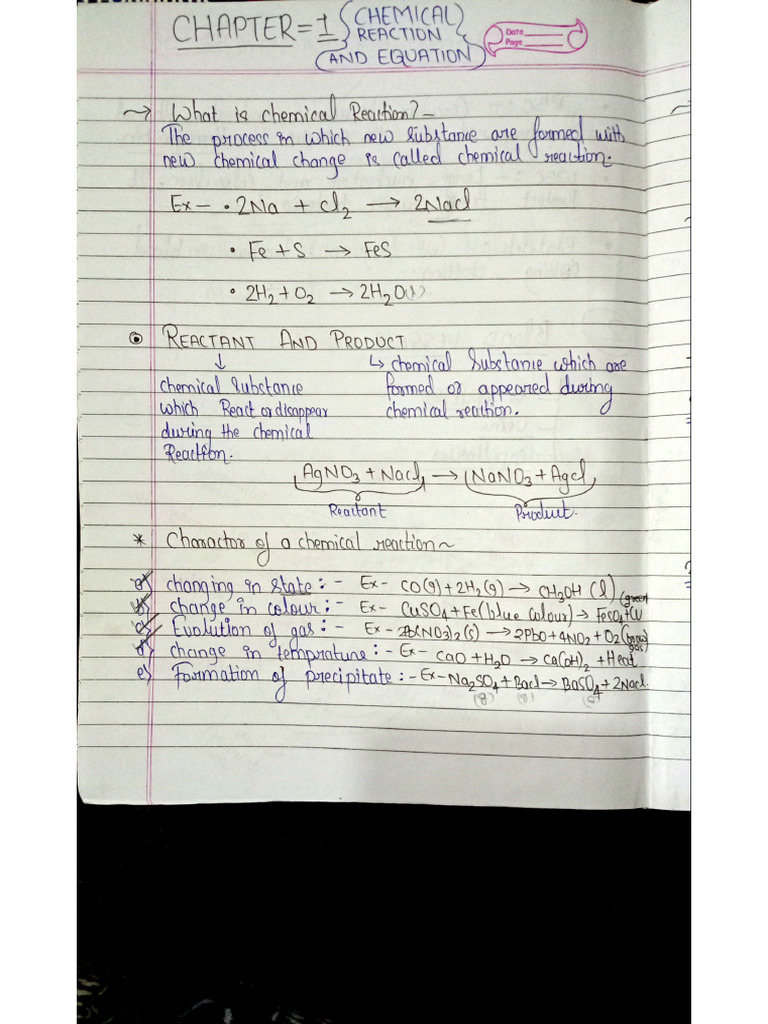 CHAPTER = 1 CHEMICAL
REACTION
AND EQUATION
Date
Page
What is chemical Reaction? -
The process in which new substance are formed with
new chemical change is called chemical reaction.
Ex - • 2Na + cl2 → 2Nacl
• Fe + S → FeS
• 2H2 + O2 → 2H2O(l)
REACTANT AND PRODUCT
chemical substance
which React or disappear
during the chemical
Reaction.
chemical substance which are
formed or appeared during
chemical reaction.
AgNO3 + Nacl → NaNO3 + Agcl
Reactant Product.
* Charactor of a chemical reaction ~
a) changing in state :- Ex - CO(g) + 2H2(g) → CH3OH (l)
b) change in colour :- Ex - CuSO4 + Fe (blue colour) → FeSO4 + Cu (green
c) Evolution of gas :- Ex - 2Pb(NO3)2(s) → 2PbO + 4NO2 + O2 (brown gas)
d) change in temprature :- Ex - CaO + H2O → Ca(OH)2 + Heat
e) Formation of precipitate :- Ex - Na2SO4 + Bacl → BaSO4 + 2Nacl.